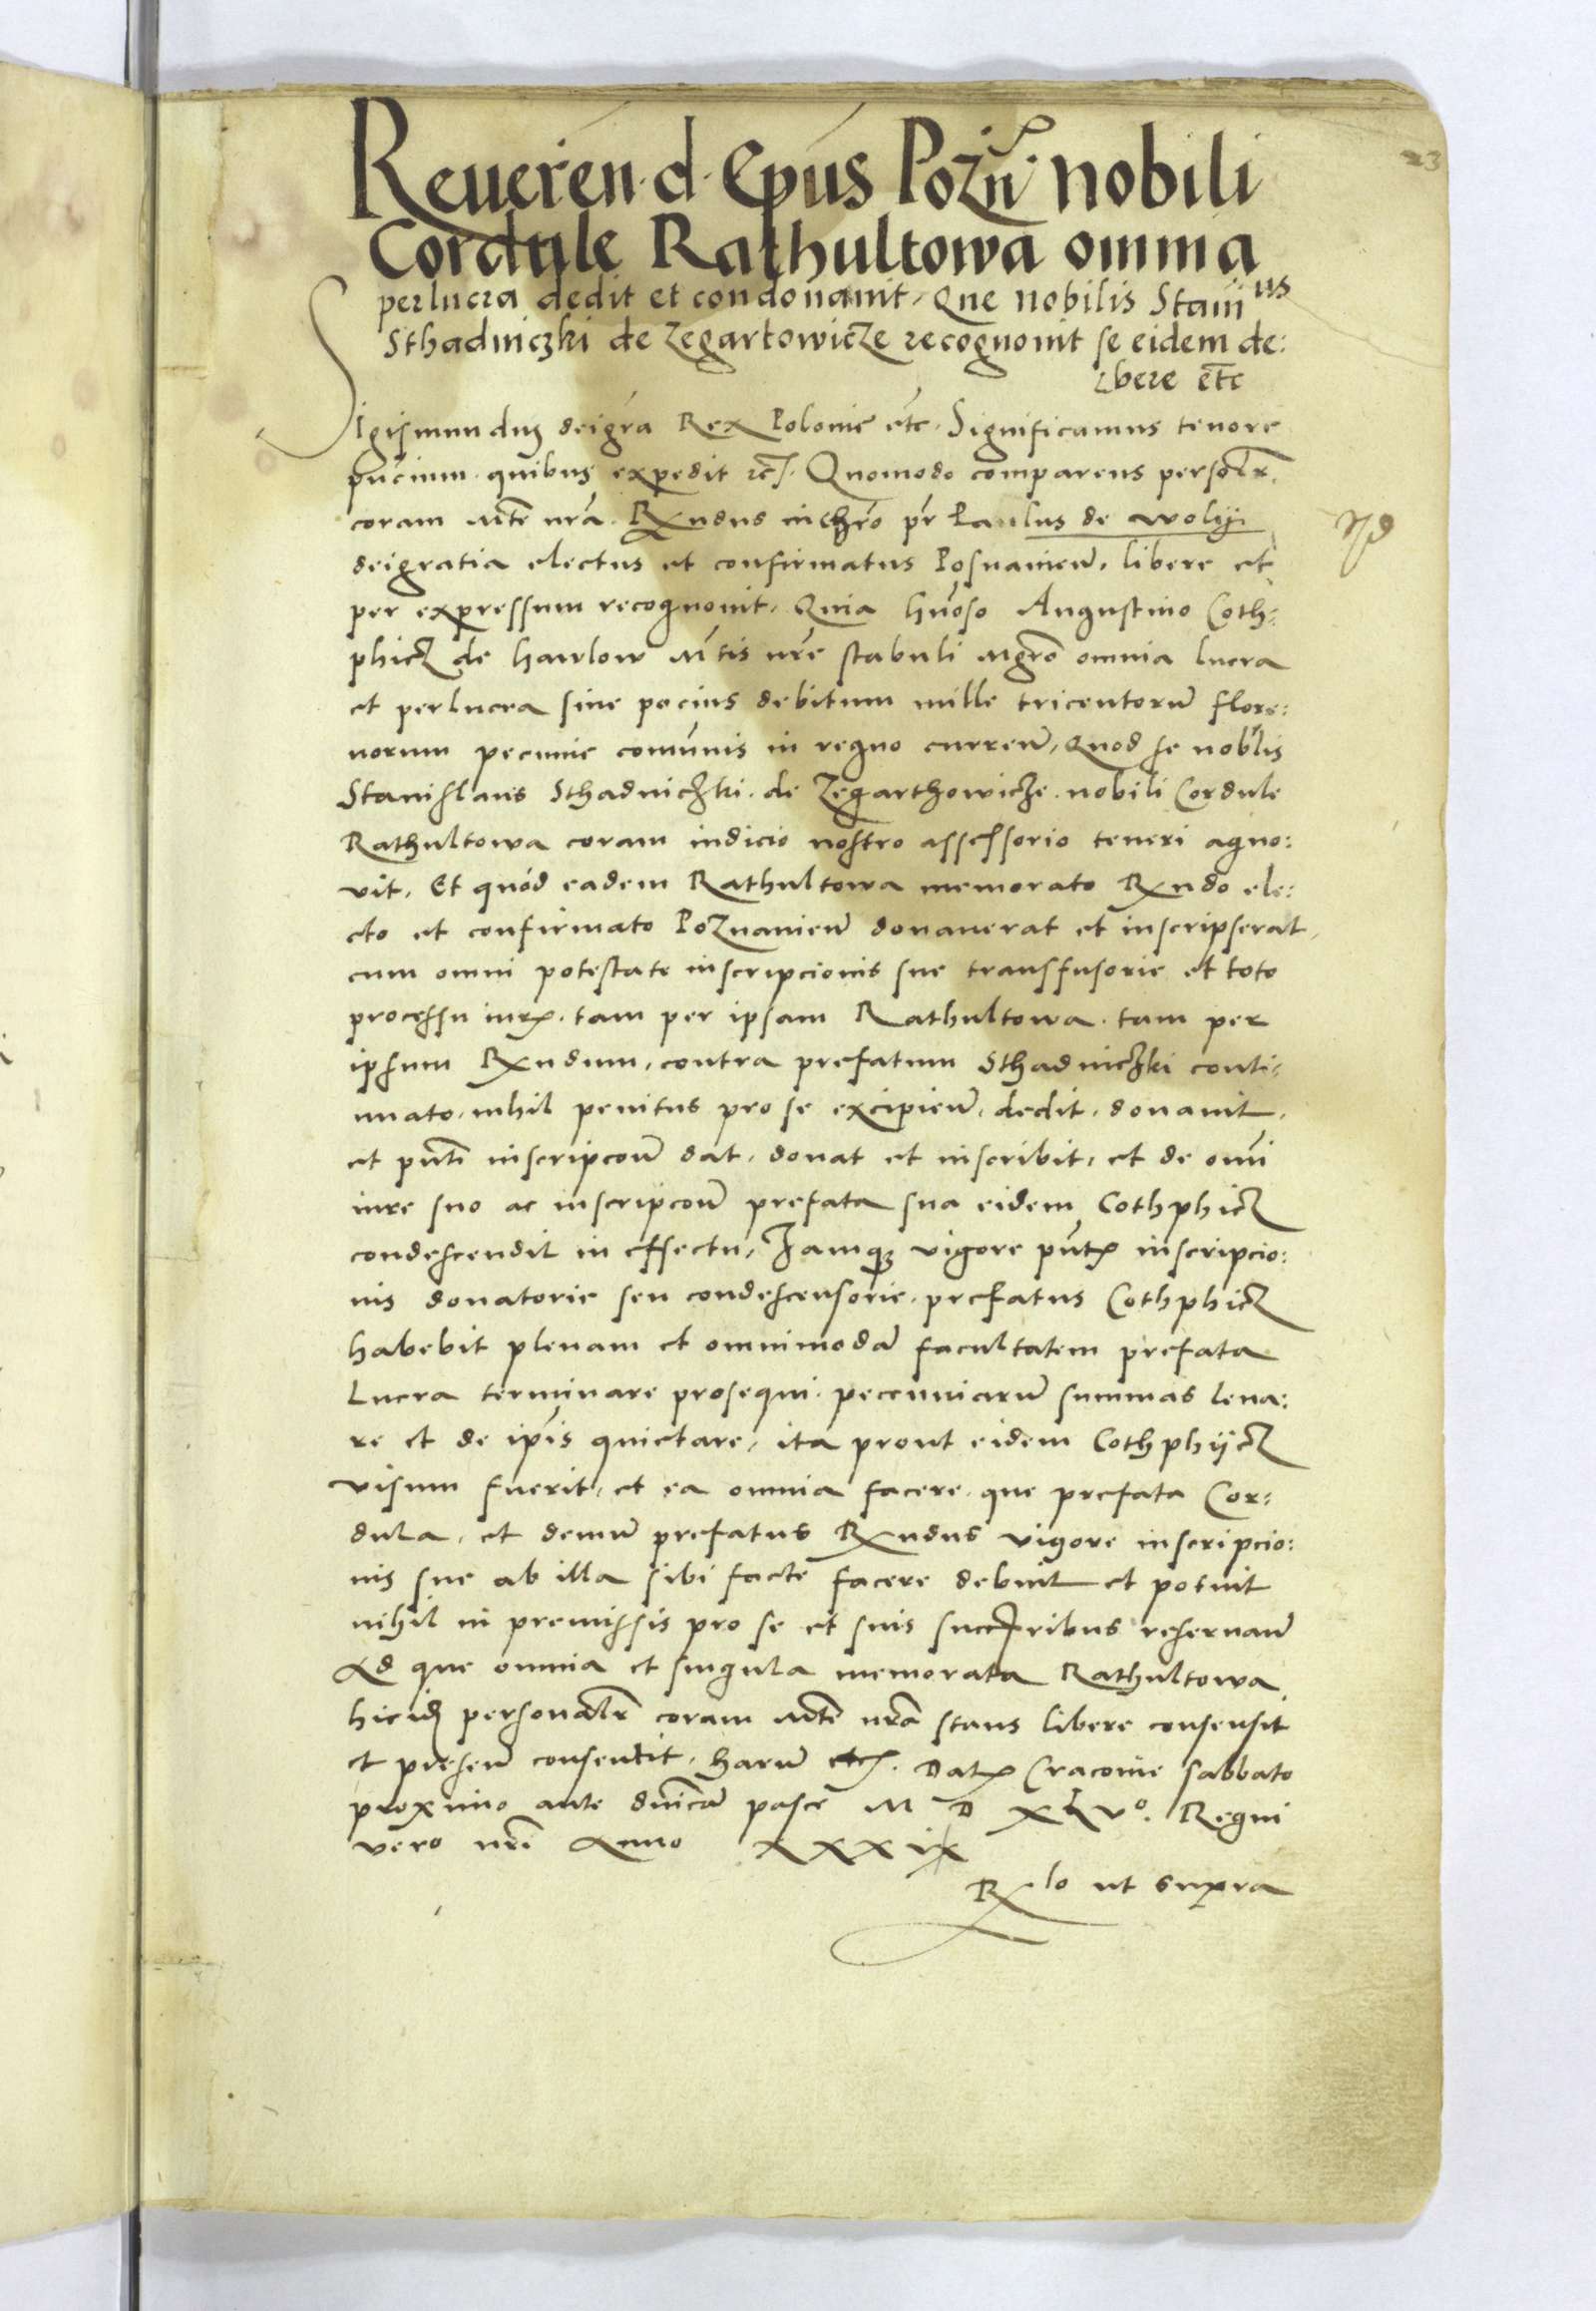 23
Reueren. d. Ep̃us Pozn̄. nobili
Cordule Rathultowa omnia
perlucra dedit et condonauit, Que nobilis Stan̄us
Sthadniczki de Zegartowicze recognouit se eidem de:
:bere etc̄
Sigismundus dei gr̄a Rex Polonie etc̄. Significamus tenore
pn̄cium. quibus expedit etc. Quomodo comparens personalr̄
coram Mte nr̄a. Rx̄ndus in Chr̄o pr̄ Paulus de Wolij
dei gratia electus et confirmatus Posnanien̄. libere et
per expressum recognouit. Quia Gn̄oso Augustino Coth:
phicz de Hawlow Mtis nr̄e stabuli Mgr̄o omnia lucra
et perlucra siue pocius debitum mille tricentorum̄ flore:
norum pecunie com̄unis in regno curren̄. Quod se nob̄lis
Stanislaus Sthadniczki. de Zegarthowicze. nobili Cordule
Rathultowa coram iudicio nostro assessorio teneri agno:
uit. Et quód eadem Rathultowa memorato Rx̄ndo ele:
cto et confirmato Poznanien̄ donauerat et inscripserat,
cum omni potestate inscripcionis sue transfusorie et toto
processu iur̄. tam per ipsam Rathultowa. tam per
ipsum Rx̄ndum, contra prefatum Sthadniczki conti:
nuato. nihil penitus pro se excipien̄. dedit. donauit.
et pn̄ti inscripcōn̄ dat. donat et inscribit. et de om̄i
iure suo ac inscripcōn̄ prefata sua eidem Cothphicz
condescendit in effectu. Iamq3 vigore pn̄t̄ inscripcio:
nis donatorie seu condescensorie. prefatus Cothphicz
habebit plenam et omnimodā facultatem prefata
Lucra terminare prosequi. pecuniarum̄ summas leua:
re et de ip̄is quietare, ita prout eidem Cothphijcz
visum fuerit. et ea omnia facere. que prefata Cor:
dula. et demum̄ prefatus Rx̄ndus vigore inscripcio:
nis sue ab illa sibi facte facere debuit et potuit
nihil in premissis pro se et suis succ̄ribus reseruan̄
Ad que omnia et singula memorata Rathultowa
hic id̄ personalr̄ coram Mte nr̄a stans libere consensit
et presen̄ consentit. Harum̄ etc. Dat̄ Cracouie sabbato
proximo ante dn̄icā pasce M D XLVo. Regni
vero nr̄i Anno XXXIX
Rx̄lo ut supra